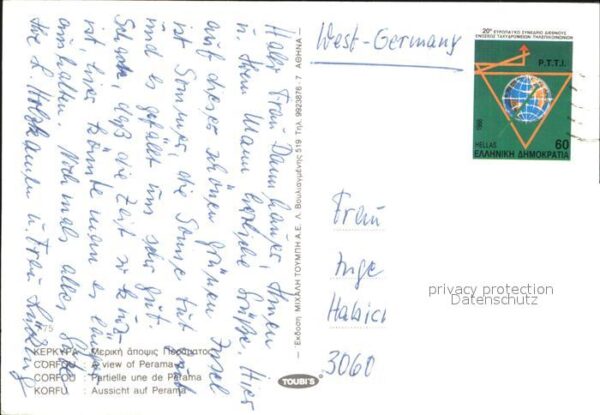 Hallo Frau Dannhauer, Ihnen
u. Ihrem Mann herzliche Grüße. Hier
auf dieser schönen grünen Insel
ist Sommer, die Sonne tut gut
und es gefällt uns sehr gut.
Schade, daß die Zeit so kurz
ist, hier könnte man es länger
aushalten. Nochmals alles Gute
Ihre
u. Frau
West-Germany
20° ΕΥΡΩΠΑΪΚΟ ΣΥΝΕΔΡΙΟ ΔΙΕΘΝΟΥΣ
ΕΝΩΣΕΩΣ ΤΑΧΥΔΡΟΜΕΙΩΝ ΤΗΛΕΠΙΚΟΙΝΩΝΙΩΝ
P.T.T.I.
1988
HELLAS 60
ΕΛΛΗΝΙΚΗ ΔΗΜΟΚΡΑΤΙΑ
Frau
Inge
Habich
3060
privacy protection
Datenschutz
Έκδοση ΜΙΧΑΛΗ ΤΟΥΜΠΗ Α.Ε. Λ. Βουλιαγμένης 519 Τηλ. 9923876 - 7 ΑΘΗΝΑ
75
ΚΕΡΚΥΡΑ : Μερική άποψις Περάματος
CORFOU : A view of Perama
CORFOU : Partielle une de Perama
KORFU : Aussicht auf Perama
TOUBI'S